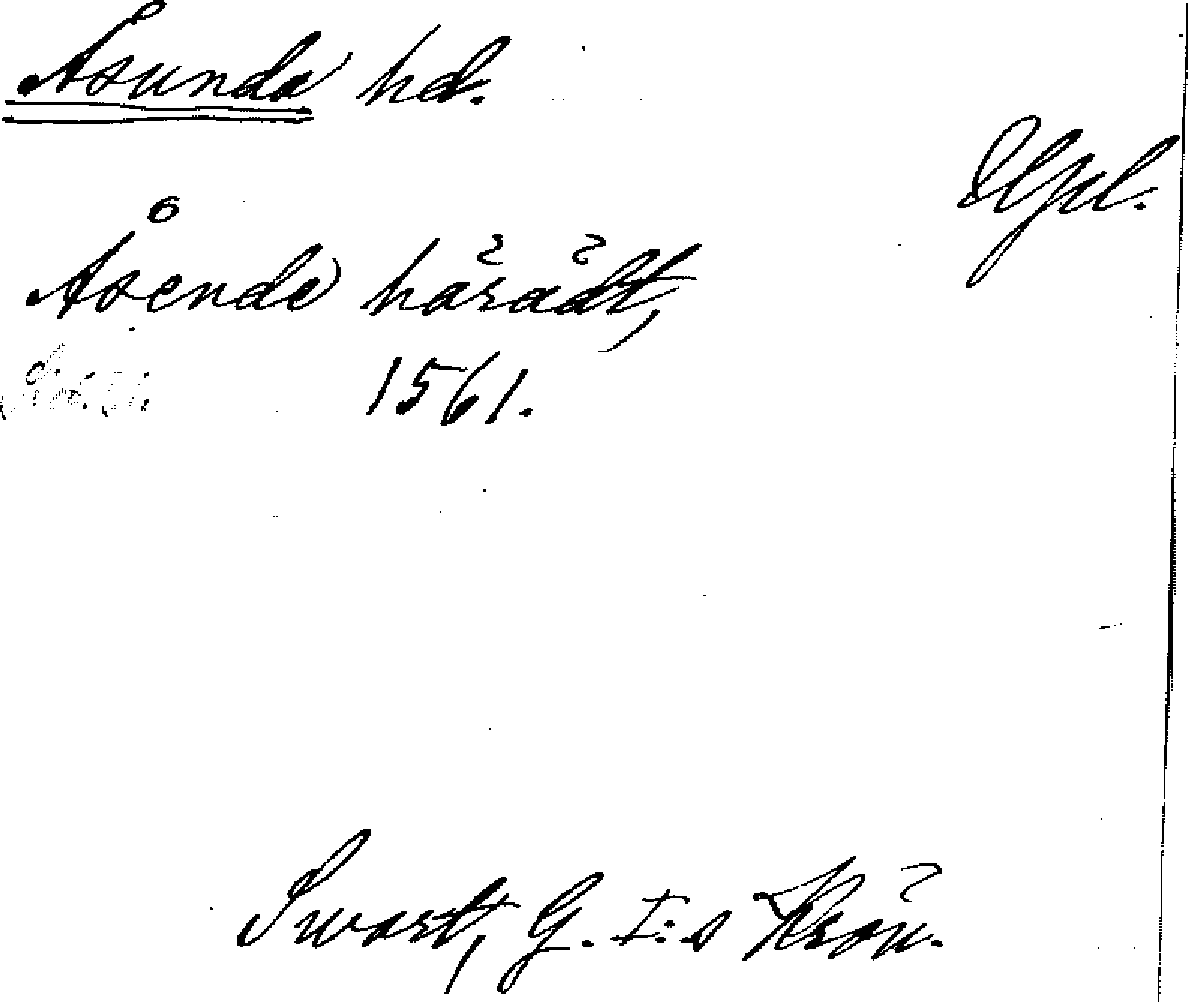 Åsunda hd.
Upl.
Åsende härädt,
1561.
Swart, G. I:s Krön.